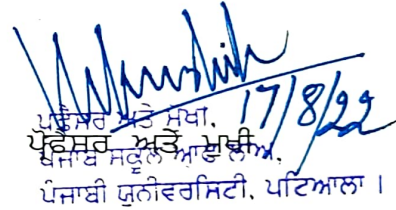 17/8/22
ਪ੍ਰੋਫੈਸਰ ਅਤੇ ਮੁਖੀ,
ਪ੍ਰੋਫੈਸਰ ਅਤੇ ਮੁਖੀ
ਪੰਜਾਬ ਸਕੂਲ ਆਫ ਲਾਅ,
ਪੰਜਾਬੀ ਯੂਨੀਵਰਸਿਟੀ, ਪਟਿਆਲਾ ।